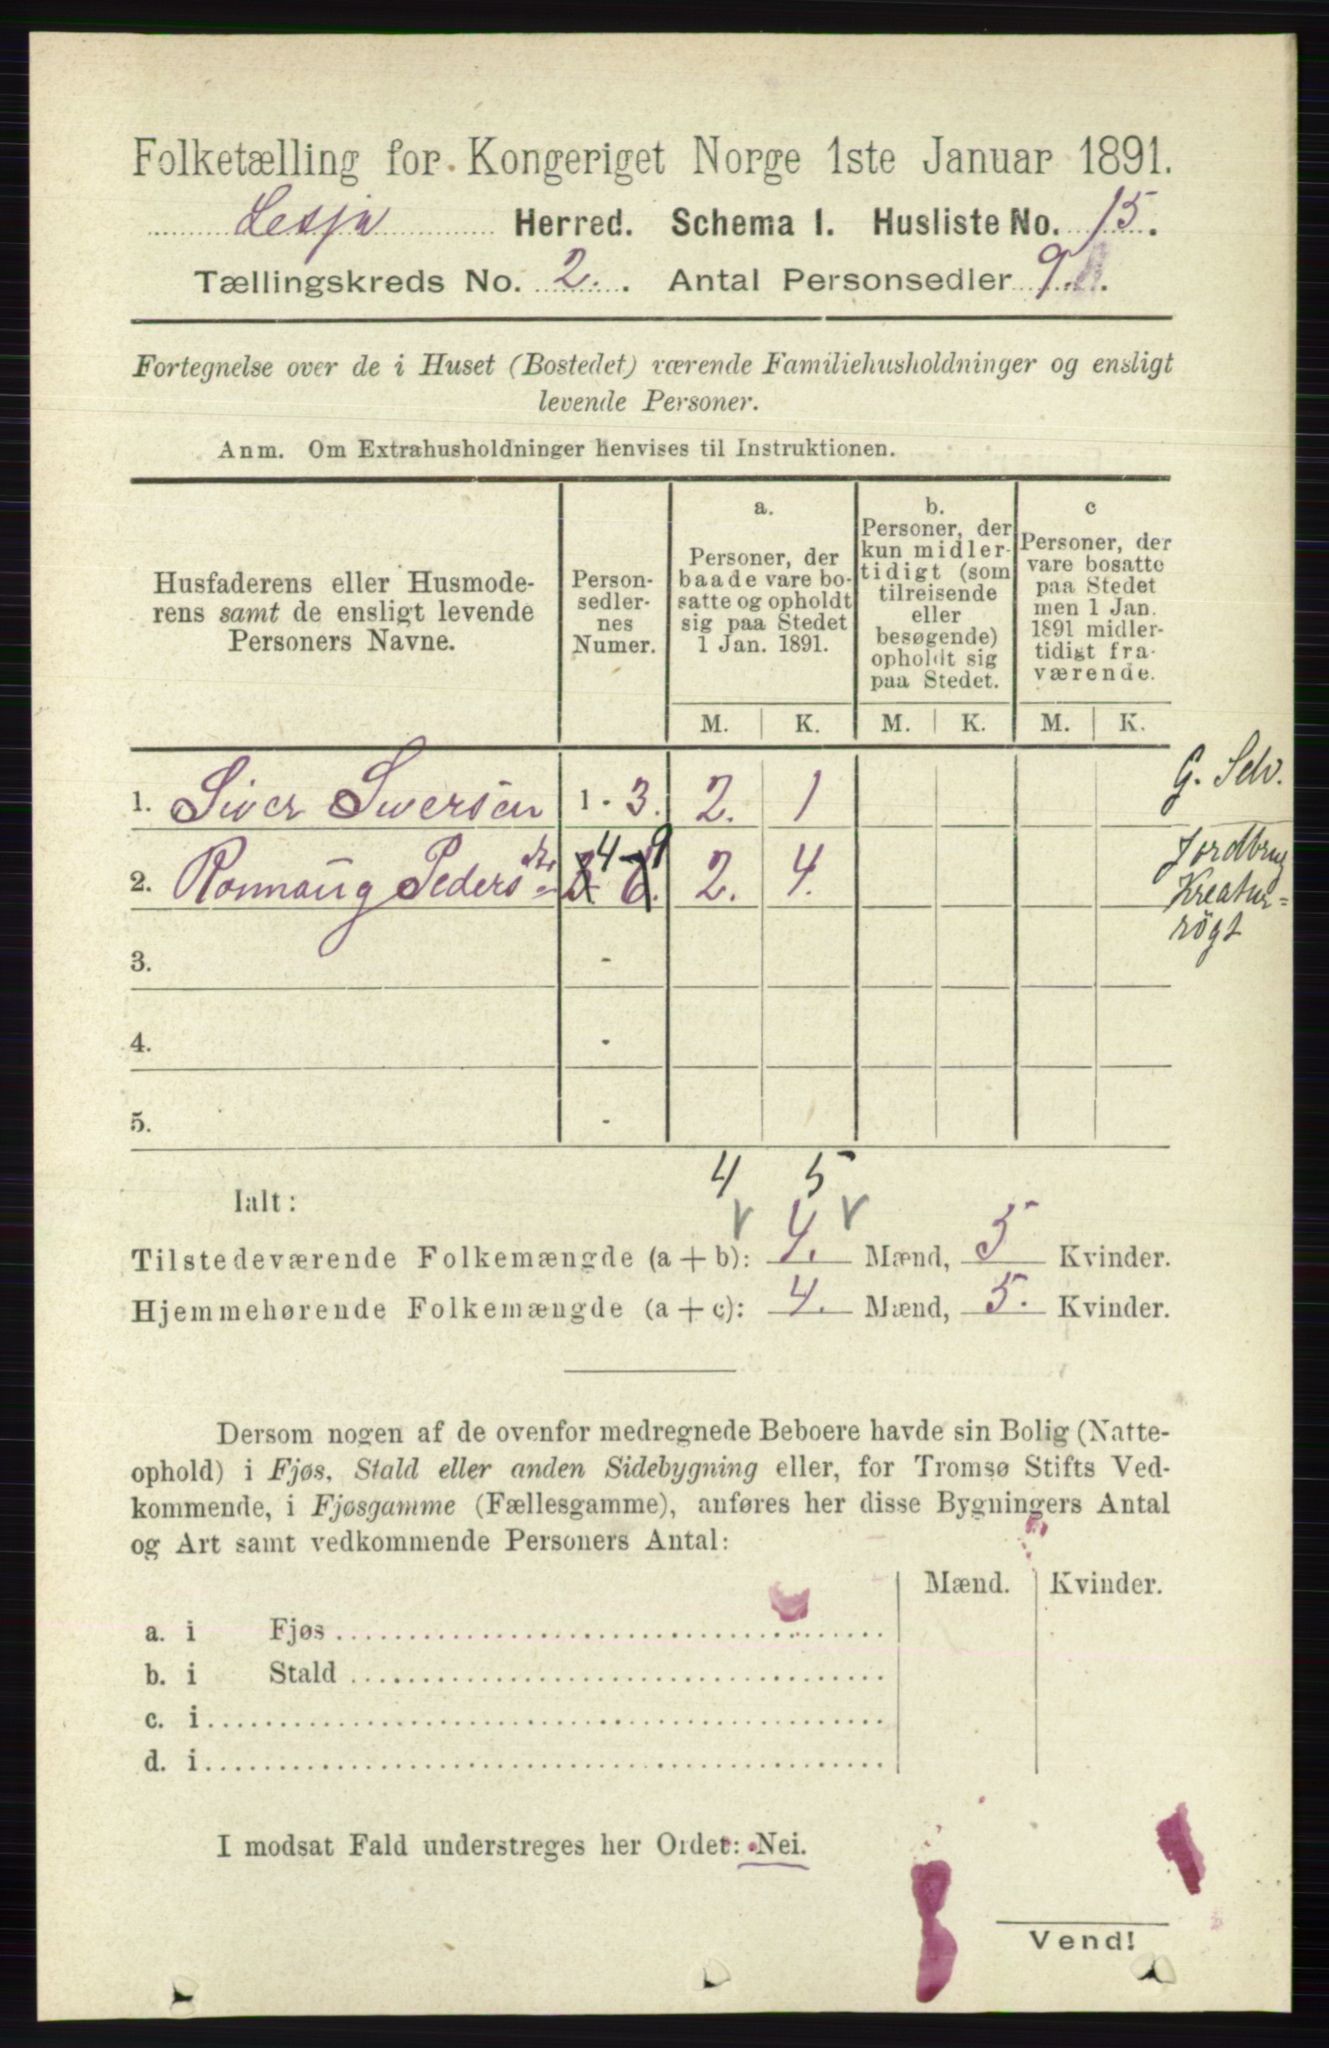 Folketælling for Kongeriget Norge 1ste Januar 1891.
Lesja Herred. Schema I. Husliste No. 15.
Tællingskreds No. 2. Antal Personsedler 9.
Fortegnelse over de i Huset (Bostedet) værende Familiehusholdninger og ensligt
levende Personer.
Anm. Om Extrahusholdninger henvises til Instruktionen.
Husfaderens eller Husmode-
rens samt de ensligt levende
Personers Navne.
Person-
sedler-
nes
Numer.
a.
Personer, der
baade vare bo-
satte og opholdt
sig paa Stedet
1 Jan. 1891.
b.
Personer, der
kun midler-
tidigt (som
tilreisende
eller
besøgende)
opholdt sig
paa Stedet.
c
Personer, der
vare bosatte
paa Stedet
men 1 Jan.
1891 midler-
tidigt fra-
værende.
M. K. M. K. M. K.
1. Siver Siversen 1 - 3. 2. 1
G. Selv.
2. Ronnaug Pedersdtr 4 9 2. 4.
Jordbrug
Kreatur-
røgt
3. -
4. -
5. -
4 5
Ialt:
Tilstedeværende Folkemængde (a + b): 4. Mænd, 5 Kvinder.
Hjemmehørende Folkemængde (a + c): 4. Mænd, 5. Kvinder.
Dersom nogen af de ovenfor medregnede Beboere havde sin Bolig (Natte-
ophold) i Fjøs, Stald eller anden Sidebygning eller, for Tromsø Stifts Ved-
kommende, i Fjøsgamme (Fællesgamme), anføres her disse Bygningers Antal
og Art samt vedkommende Personers Antal:
Mænd. Kvinder.
a. i Fjøs
b. i Stald
c. i
d. i
I modsat Fald understreges her Ordet: Nei.
Vend!